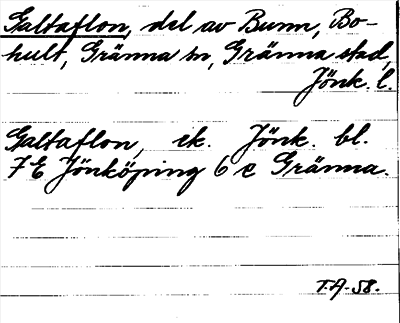 Galtaflon, del av Bunn, Bo-
hult, Gränna sn, Gränna stad,
Jönk. l.
Galtaflon, ek. Jönk. bl.
7 E Jönköping 6 e Gränna.
T.A. 58.